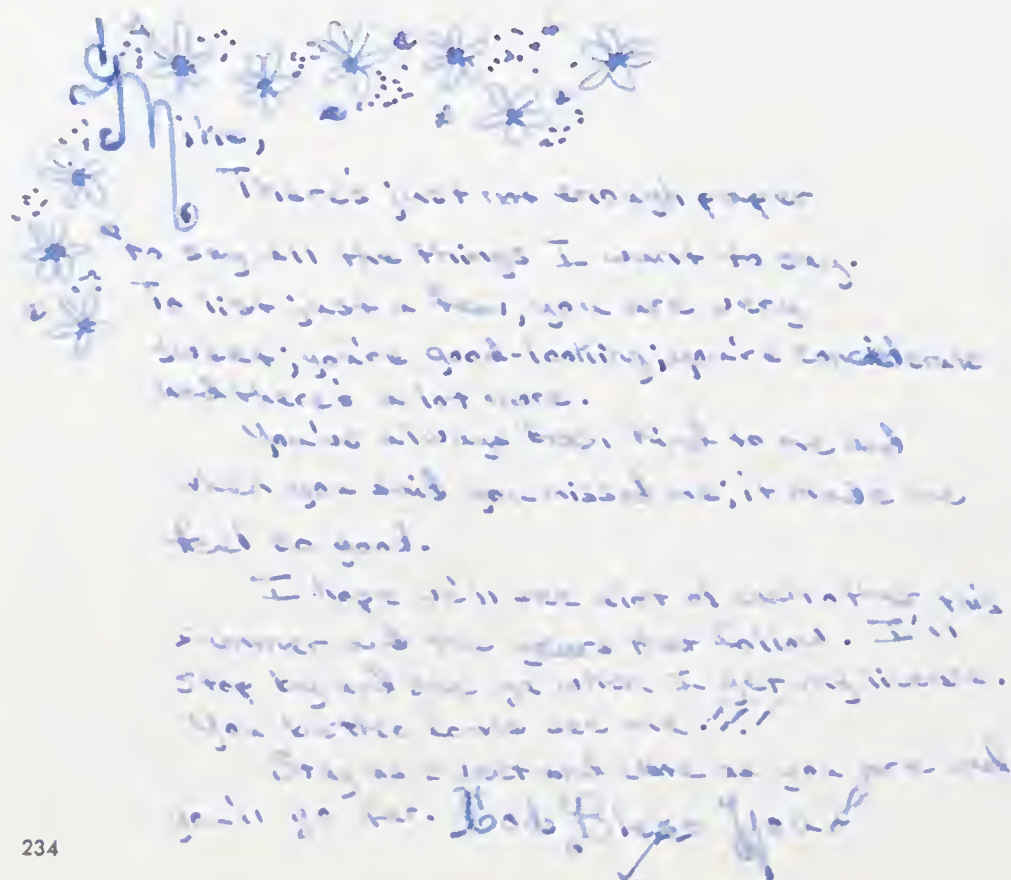 Mike,
There's just not enough paper
to say all the things I want to say.
To list just a few, you are very
sweet; you're good-looking; you're considerate
and there's a lot more.
You've always been kind to me and
when you said you missed me, it made me
feel so good.
I hope we'll see a lot of each other this
summer and the years that follow. I'll
stop by and see ya when I get my license.
You better come see me !!!
Stay as sweet and cute as you are and
you'll go far.
234